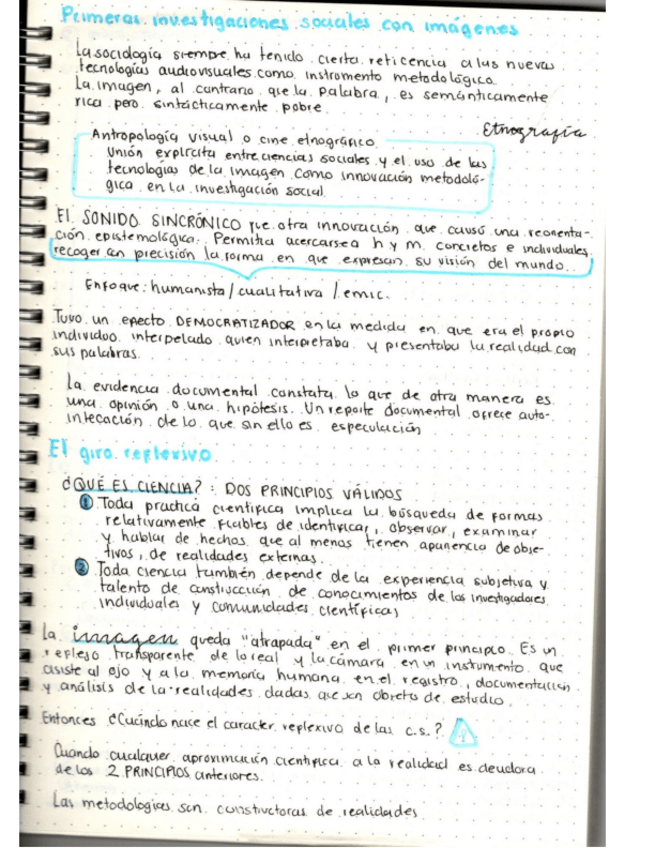 Primeras investigaciones sociales con imágenes
La sociología siempre ha tenido cierta reticencia a las nuevas
tecnologías audiovisuales como instromento metodológico.
La imagen, al contrario que la palabra, es semánticamente
rica pero sintácticamente pobre
Etnografía
Antropología visual o cine etnográfico
Unión explícita entre ciencias sociales y el uso de las
tecnologías de la imagen como innovación metodoló-
gica en la investigación social
El SONIDO SINCRÓNICO fue otra innovación que causó una reorienta-
ción epistemológica. Permitía acercarse a h y m concretos e individuales,
recoger con precisión la forma en que expresan su visión del mundo.
Enfoque: humanista/cualitativa/emic.
Tuvo un efecto DEMOCRATIZADOR en la medida en que era el propio
individuo interpelado quien interpretaba y presentaba la realidad con
sus palabras.
La evidencia documental constata lo que de otra manera es
una opinión o una hipótesis. Un reporte documental ofrece auto-
inticación de lo que sin ello es especulación
El giro reflexivo
¿QUÉ ES CIENCIA?: DOS PRINCIPIOS VÁLIDOS
① Toda practica científica implica la búsqueda de formas
relativamente fiables de identificar, observar, examinar
y hablar de hechos que al menos tienen apariencia de obje-
tivos, de realidades externas.
② Toda ciencia también depende de la experiencia subjetiva y
talento de construcción de conocimientos de los investigadores
individuales y comunidades científicas
La imagen queda "atrapada" en el primer principio. Es un
reflejo transparente de lo real y la cámara en un instrumento que
asiste al ojo y a la memoria humana en el registro, documentación
y análisis de la realidades dadas que son objeto de estudio.
Entonces ¿Cuándo nace el caracter reflexivo de las c.s.?
Cuando cualquier aproximación científica a la realidad es deudora
de los 2 PRINCIPIOS anteriores.
Las metodologías son constructoras de realidades